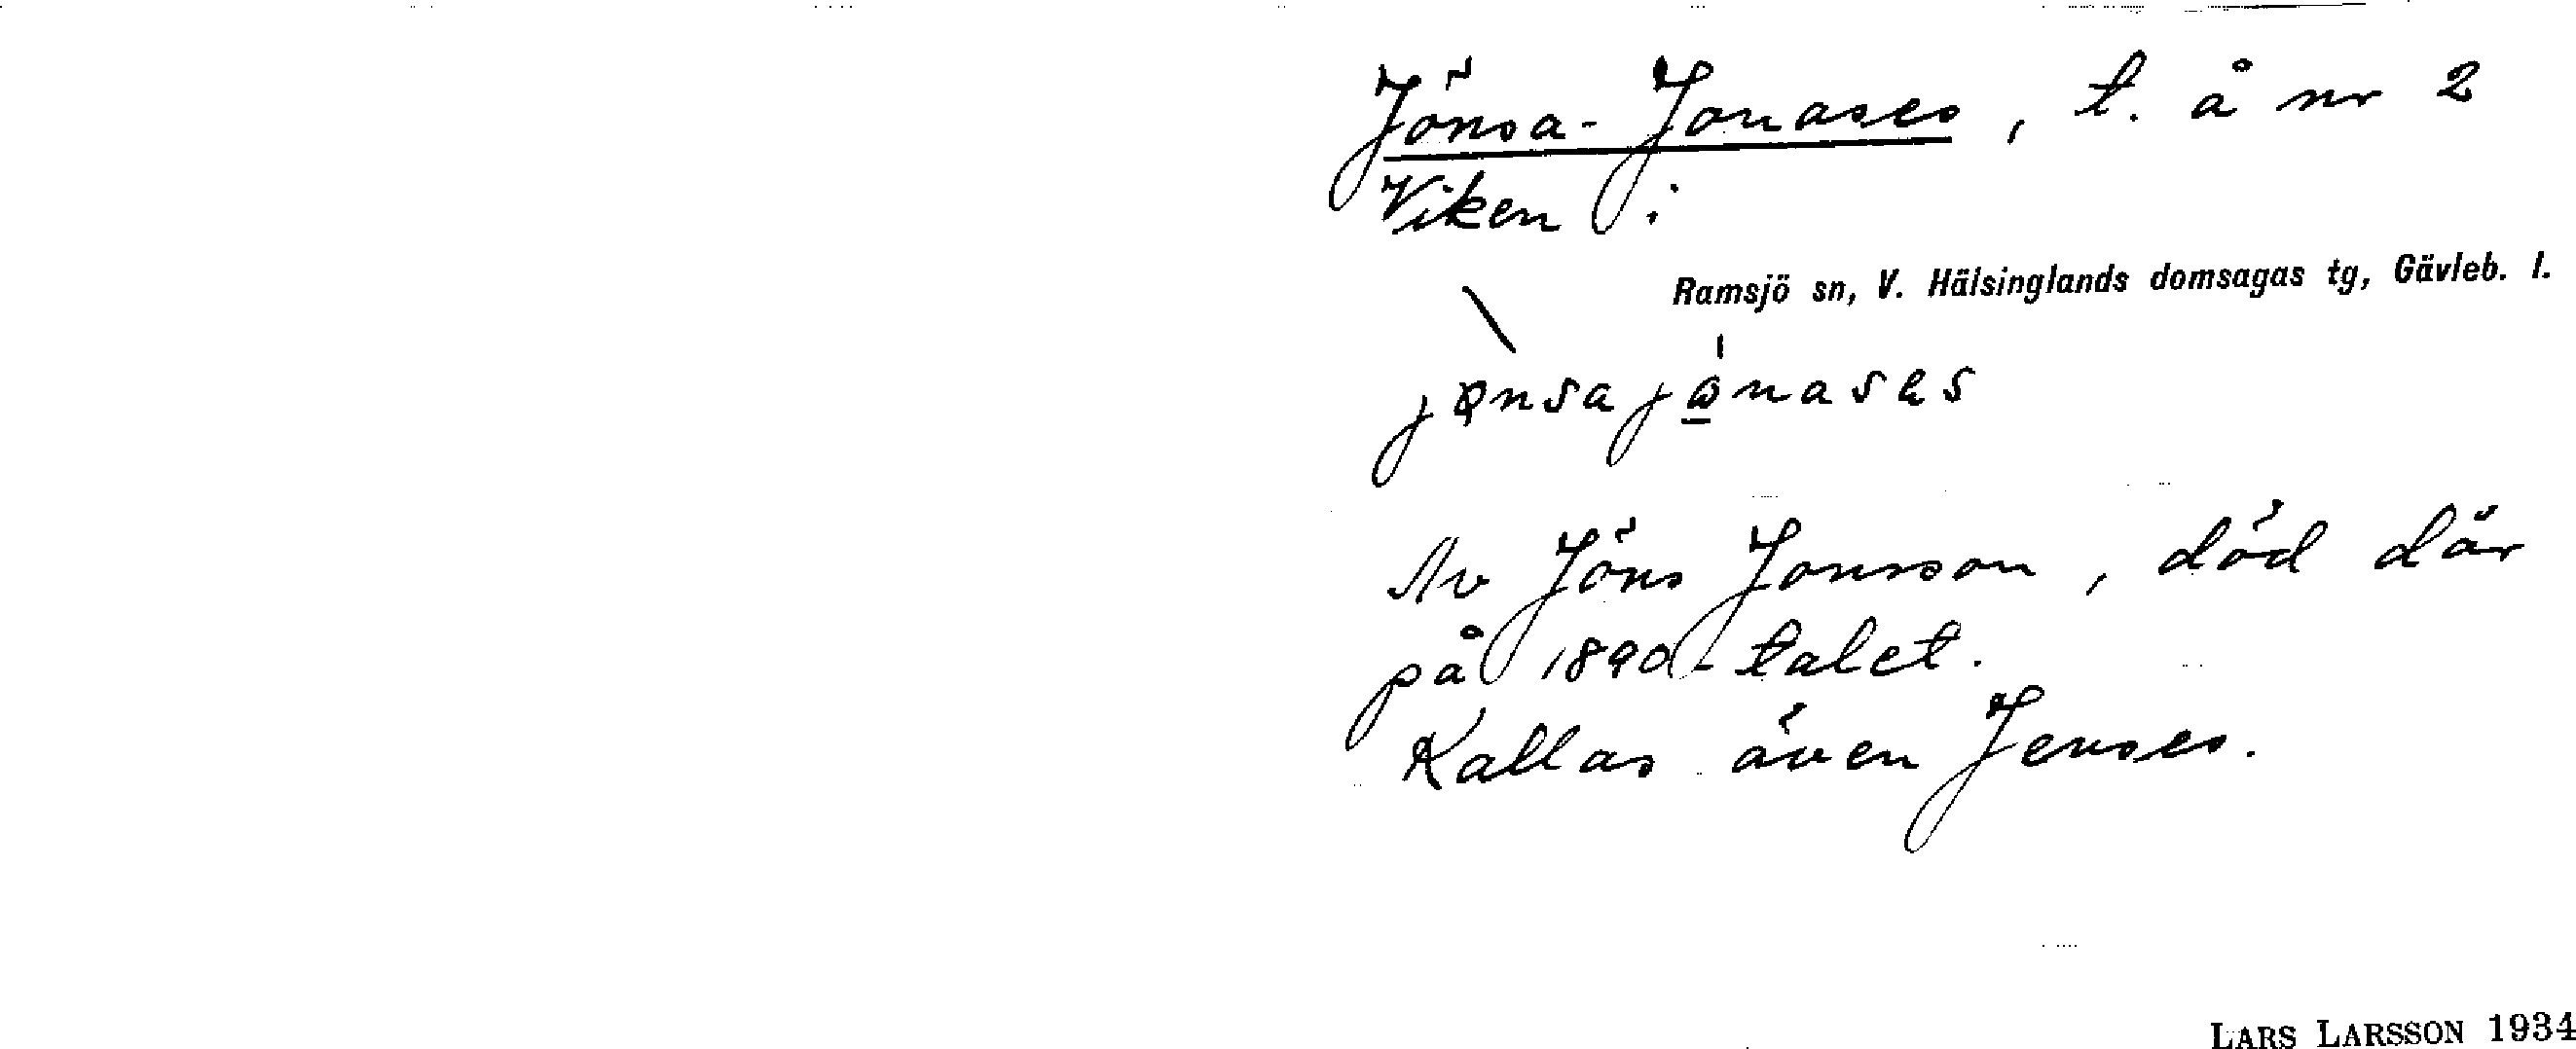 Jönsa-Jonases, t. å nr 2
Viken i
Ramsjö sn, V. Hälsinglands domsagas tg, Gävleb. l.
Av Jöns Jonsson, död där
på 1890-talet.
Kallas även Jenses.
LARS LARSSON 1934